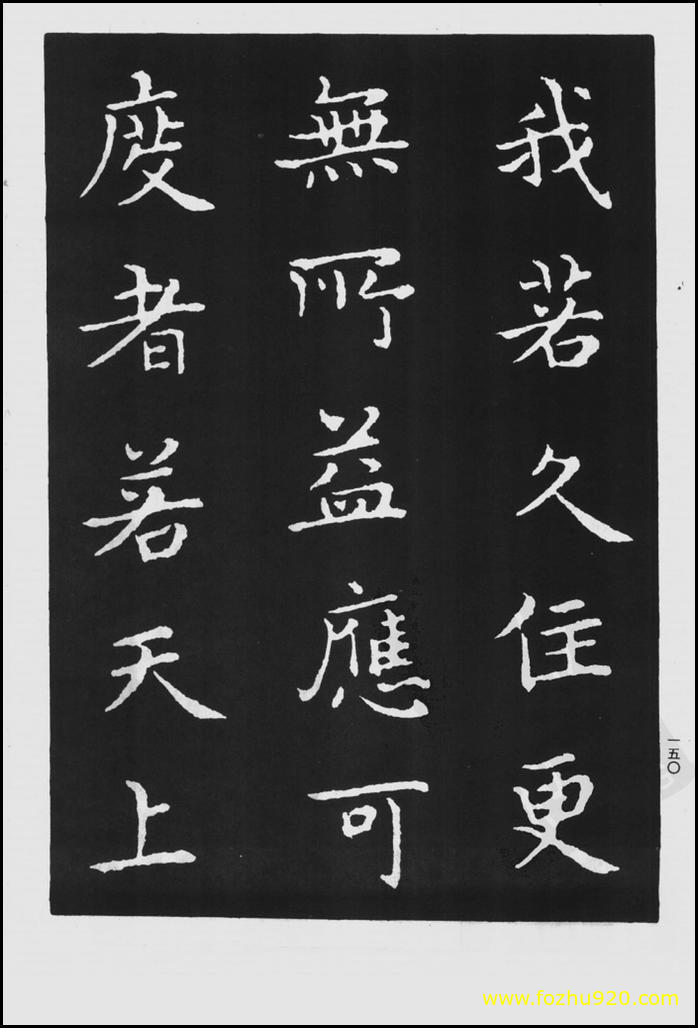 我若久住更
無所益應可
度者若天上
一五〇
www.fozhu920.com